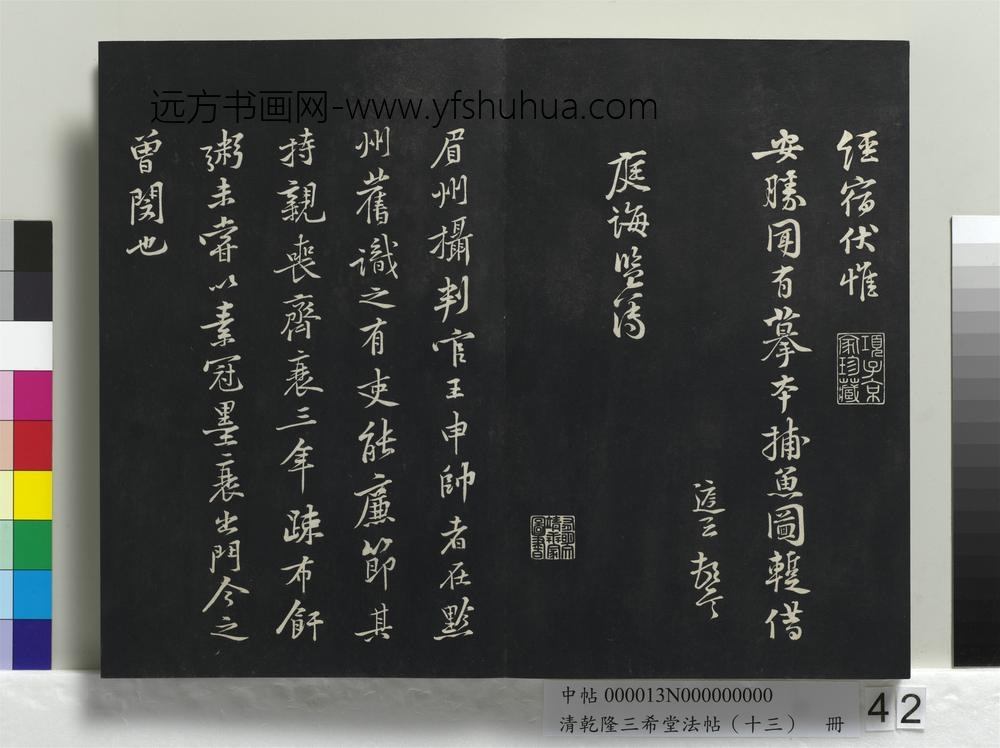 远方书画网-www.yfshuhua.com
經宿伏惟
項子京
家珍藏
安勝聞有摹本捕魚圖輒借
庭誨監簿
眉州攝判官王申帥者在黔
州舊識之有吏能廉節其
持親喪齊衰三年疎布飦
粥未嘗以素冠墨衰出門令之
曾閔也
中帖 000013N000000000
清乾隆三希堂法帖（十三） 冊
42